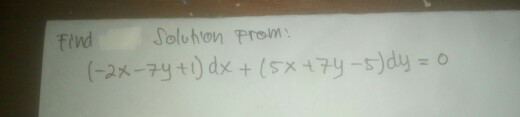 Find Solution From:
(-2x-7y+1) dx + (5x+7y-5)dy = 0